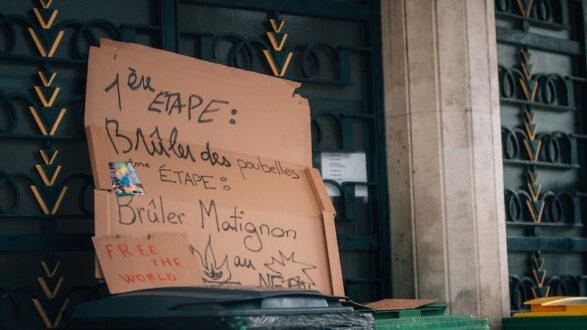 1ère ETAPE :
Brûler des poubelles
ème ÉTAPE :
Brûler Matignon
au
FREE THE
WORLD